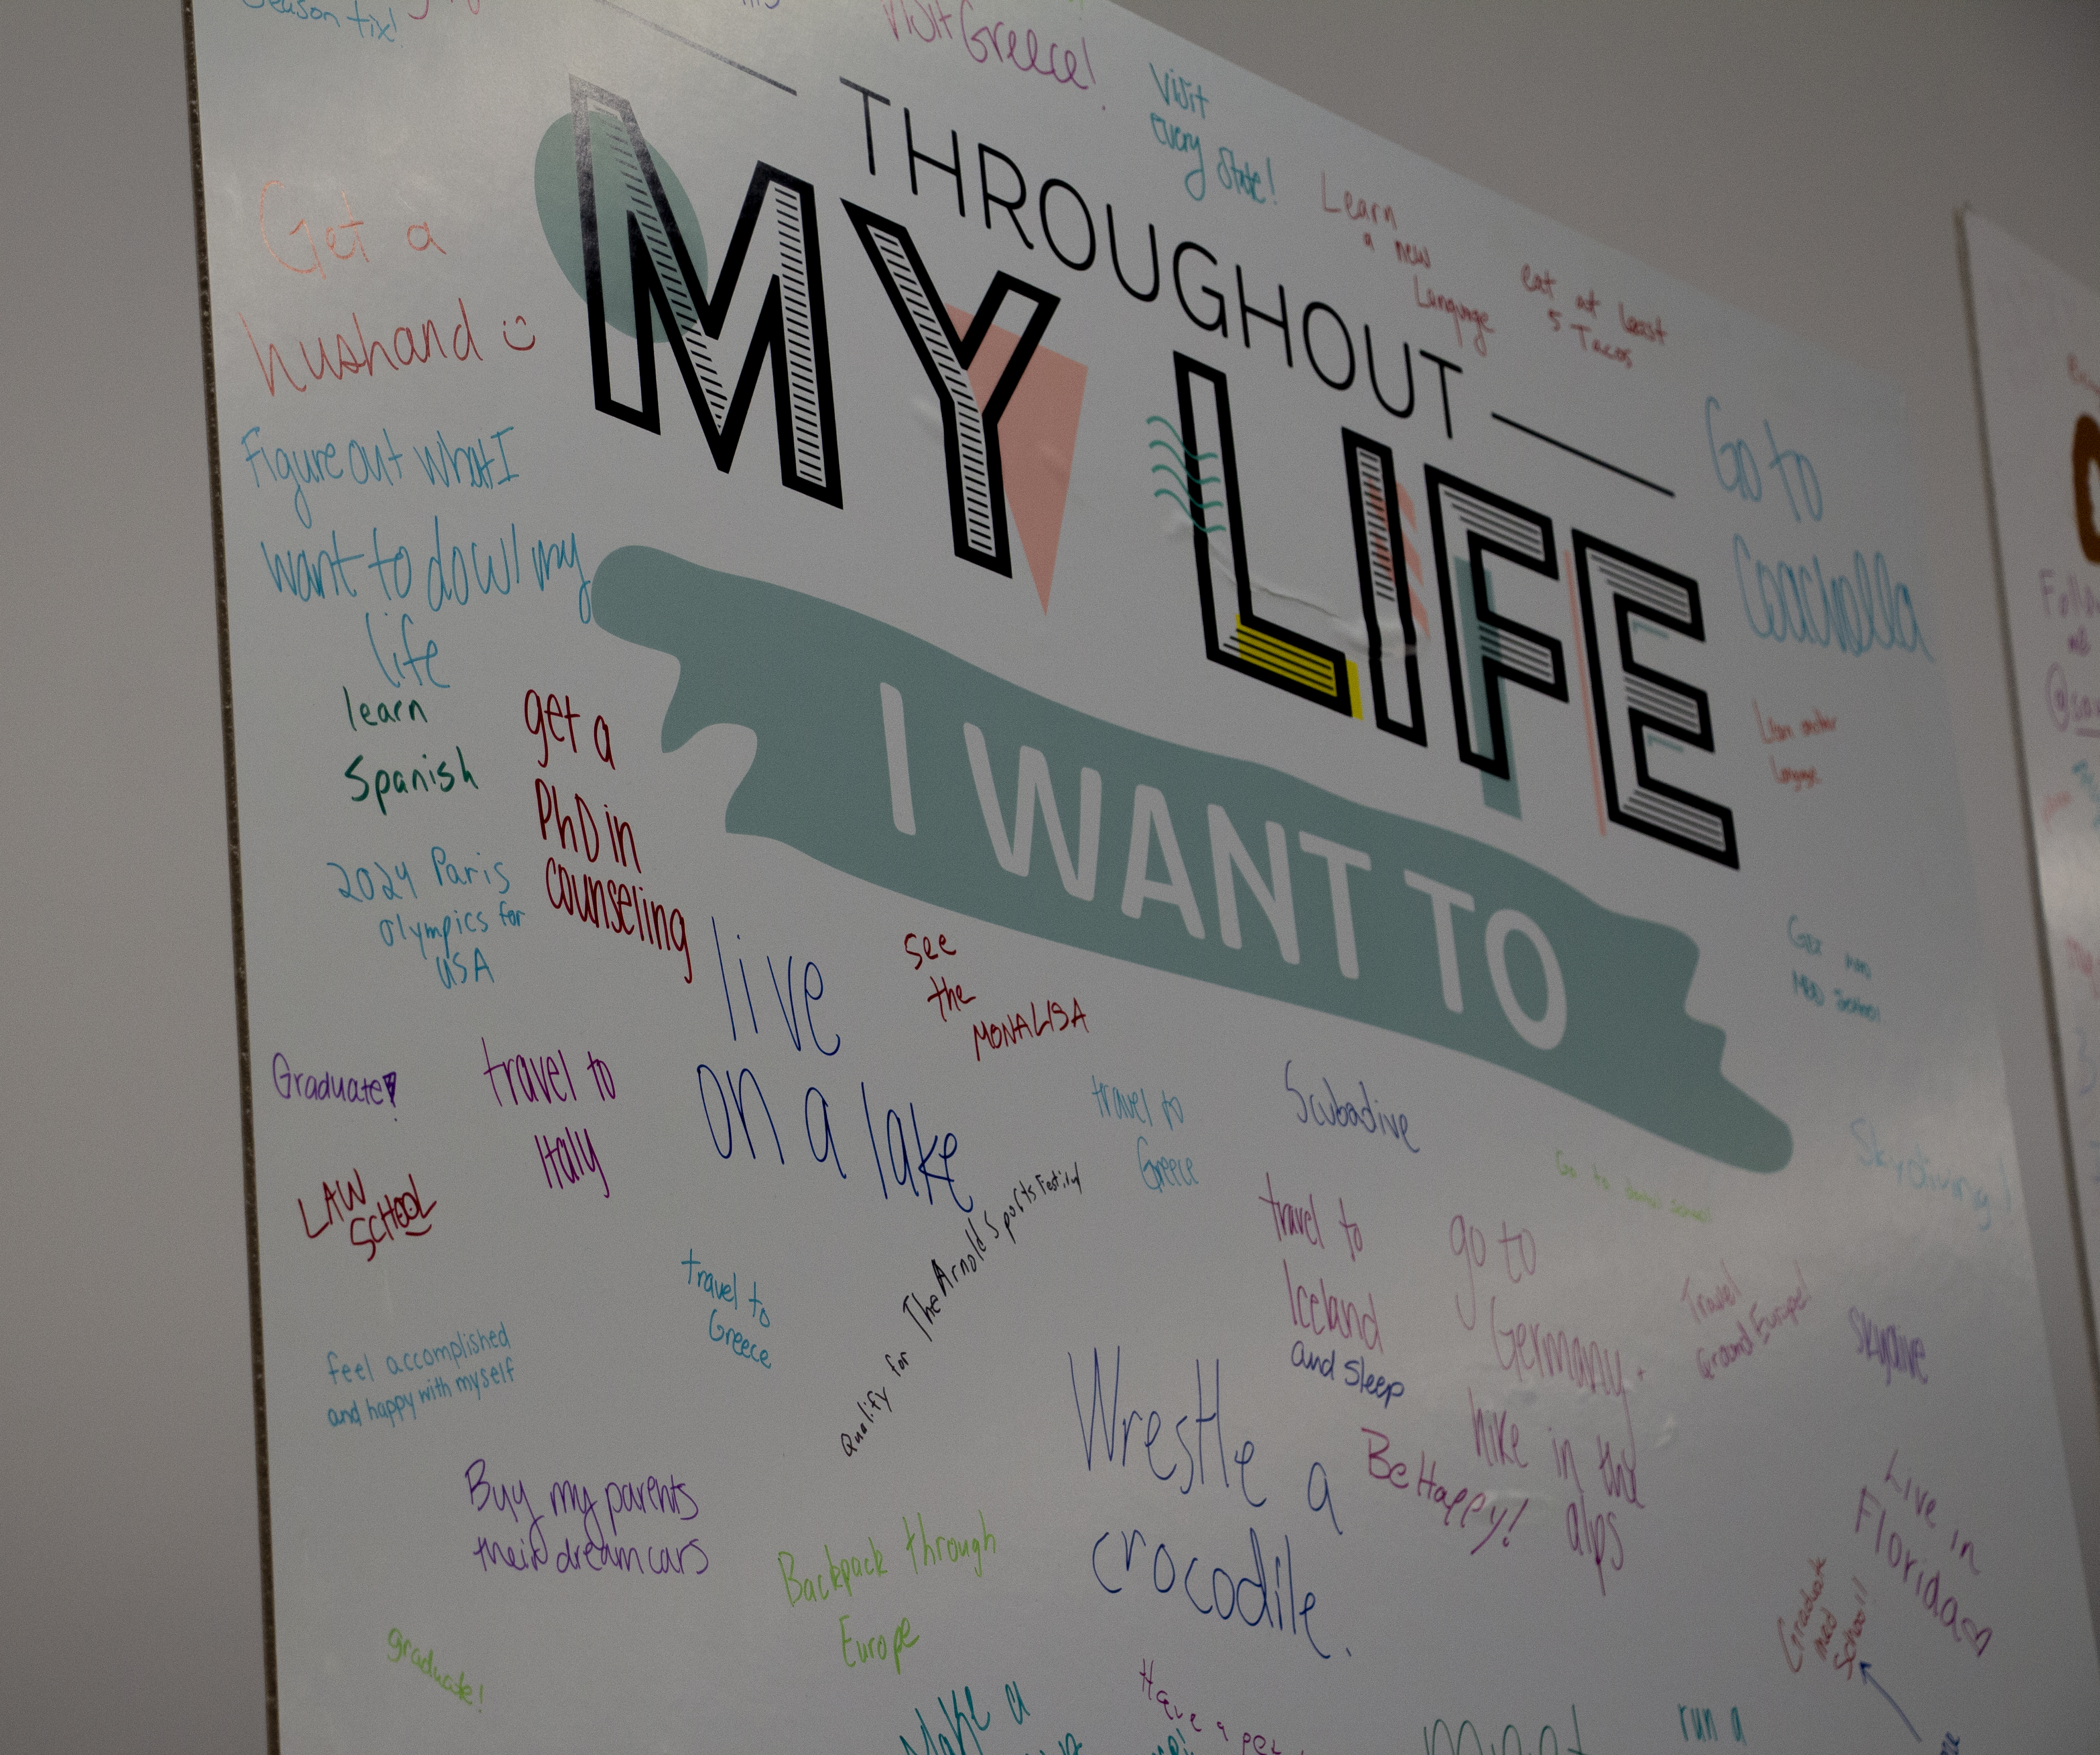 Season tix!
Visit Greece!
Visit
every state!
THROUGHOUT
MY LIFE
I WANT TO
Learn
a new
Language
eat at least
5 Tacos
Get a
husband
Figure out what I
want to do w/ my
life
Go to
Coachella
learn
Spanish
get a
PhD in
counseling
2024 Paris
Olympics for
USA
live
on a lake
see
the
MONALISA
Graduate!
travel to
Italy
LAW
SCHOOL
travel to
Greece
Scubadive
Skydiving!
travel to
Greece
Qualify for The Arnold Sports Festival
travel to
Iceland
and sleep
go to
Germany.
hike in the
alps
Travel
Around Europe!
Skydive
feel accomplished
and happy with myself
Wrestle a
crocodile.
Be Happy!
Buy my parents
their dream cars
Backpack through
Europe
Live in
Florida
Graduate
med
School!!
graduate!
Make a
Have a pet
run a